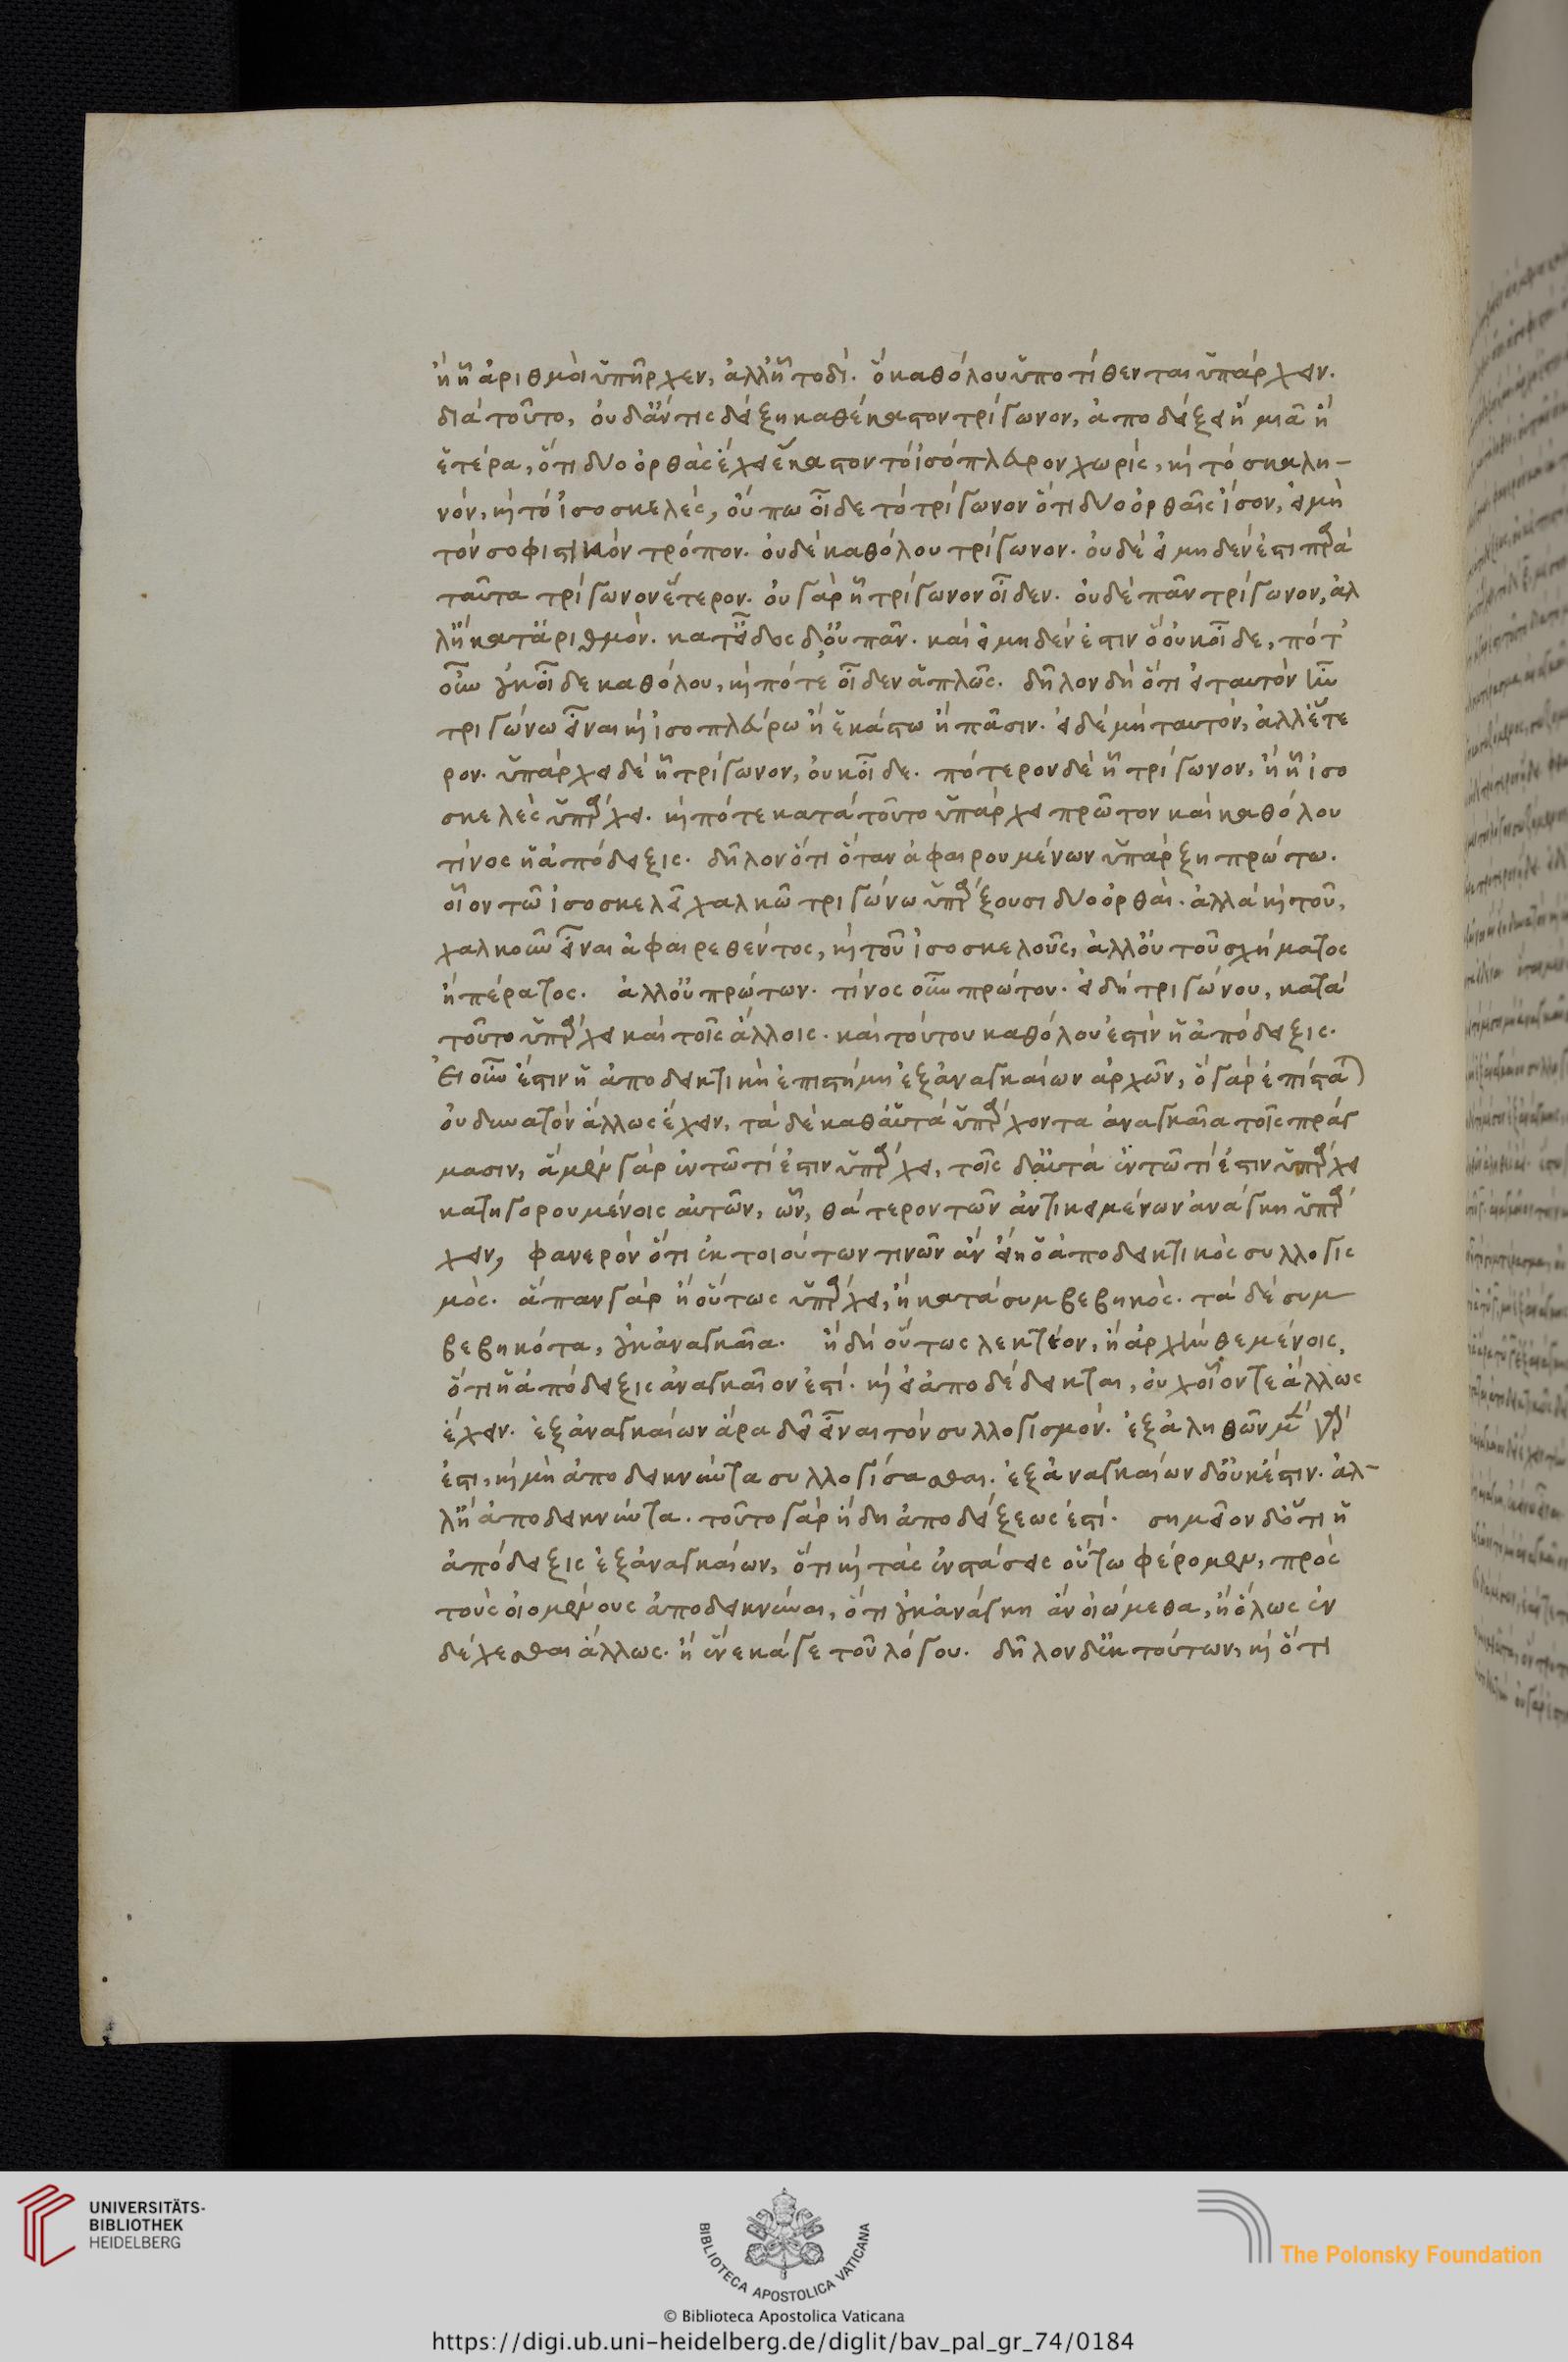 ἢ ᾗ ἀριθμοὶ ὑπῆρχεν, ἀλλ' ᾗ τοδί. ὃ καθόλου ὑποτίθενται ὑπάρχειν.
διὰ τοῦτο, οὐδ' ἄν τις δείξῃ καθ' ἕκαστον τρίγωνον, ἀποδείξει ἢ μιᾷ ἢ
ἑτέρα, ὅτι δύο ὀρθὰς ἔχει ἕκαστον τὸ ἰσόπλευρον χωρίς, καὶ τὸ σκαλη-
νόν, καὶ τὸ ἰσοσκελές, οὔπω οἶδε τὸ τρίγωνον ὅτι δύο ὀρθαῖς ἴσον, εἰ μὴ
τὸν σοφιστικὸν τρόπον. οὐδὲ καθόλου τρίγωνον. οὐδὲ εἰ μηδέν ἐστι παρὰ
ταῦτα τρίγωνον ἕτερον. οὐ γὰρ ᾗ τρίγωνον οἶδεν. οὐδὲ πᾶν τρίγωνον, ἀλ
λ' ἢ κατ' ἀριθμόν. κατ' εἶδος δ' οὐ πᾶν. καὶ εἰ μηδέν ἐστιν ὃ οὐκ οἶδε, πότ'
οὖν οὐκ οἶδε καθόλου, καὶ πότε οἶδεν ἁπλῶς. δῆλον δὴ ὅτι εἰ ταυτὸν ἦν
τριγώνω εἶναι καὶ ἰσοπλεύρω ἢ ἑκάστω ἢ πᾶσιν. εἰ δὲ μὴ ταυτόν, ἀλλ' ἕτε
ρον. ὑπάρχει δὲ ᾗ τρίγωνον, οὐκ οἶδε. πότερον δὲ ᾗ τρίγωνον, ἢ ᾗ ἰσο
σκελὲς ὑπάρχει. καὶ πότε κατὰ τοῦτο ὑπάρχει πρῶτον καὶ καθόλου
τίνος ἡ ἀπόδειξις. δῆλον ὅτι ὅταν ἀφαιρουμένων ὑπάρξῃ πρώτω.
οἷον τῶ ἰσοσκελεῖ χαλκῶ τριγώνω ὑπάρξουσι δύο ὀρθαί. ἀλλὰ καὶ τοῦ,
χαλκοῦν εἶναι ἀφαιρεθέντος, καὶ τοῦ ἰσοσκελοῦς, ἀλλ' οὐ τοῦ σχήματος
ἢ πέρατος. ἀλλ' οὐ πρώτων. τίνος οὖν πρώτου. εἰ δὴ τριγώνου, κατὰ
τοῦτο ὑπάρχει καὶ τοῖς ἄλλοις. καὶ τούτου καθόλου ἐστὶν ἡ ἀπόδειξις.
Εἰ οὖν ἐστιν ἡ ἀποδεικτικὴ ἐπιστήμη ἐξ ἀναγκαίων ἀρχῶν, ὃ γὰρ ἐπίσταται
οὐ δυνατὸν ἄλλως ἔχειν, τὰ δὲ καθ' αὑτὰ ὑπάρχοντα ἀναγκαῖα τοῖς πράγ
μασιν, ἃ μὲν γὰρ ἐν τῶ τί ἐστιν ὑπάρχει, τοῖς δ' αὐτὰ ἐν τῶ τί ἐστιν ὑπάρχει
κατηγορουμένοις αὐτῶν, ὧν, θάτερον τῶν ἀντικειμένων ἀνάγκη ὑπάρ
χειν, φανερὸν ὅτι ἐκ τοιούτων τινῶν ἂν εἴη ὁ ἀποδεικτικὸς συλλογις
μός. ἅπαν γὰρ ἢ οὕτως ὑπάρχει, ἢ κατὰ συμβεβηκός. τὰ δὲ συμ
βεβηκότα, οὐκ ἀναγκαῖα. ἢ δὴ οὕτως λεκτέον, ἢ ἀρχὴν θεμένοις,
ὅτι ἡ ἀπόδειξις ἀναγκαῖον ἐστί. καὶ εἰ ἀποδέδεικται, οὐχ οἷόν τε ἄλλως
ἔχειν. ἐξ ἀναγκαίων ἄρα δεῖ εἶναι τὸν συλλογισμόν. ἐξ ἀληθῶν μὲν γάρ
ἐστι, καὶ μὴ ἀποδεικνύντα συλλογίσασθαι. ἐξ ἀναγκαίων δ' οὐκ ἔστιν. ἀλ-
λ' ἢ ἀποδεικνύντα. τοῦτο γὰρ ἤδη ἀποδείξεως ἐστί. σημεῖον δ' ὅτι ἡ
ἀπόδειξις ἐξ ἀναγκαίων, ὅτι καὶ τὰς ἐνστάσεις οὕτω φέρομεν, πρὸς
τοὺς οἰομένους ἀποδεικνύναι, ὅτι οὐκ ἀνάγκη ἂν οἰώμεθα, ἢ ὅλως ἐν
δέχεσθαι ἄλλως. ἢ ἕνεκά γε τοῦ λόγου. δῆλον δ' ἐκ τούτων, καὶ ὅτι
UNIVERSITÄTS-
BIBLIOTHEK
HEIDELBERG
BIBLIOTECA APOSTOLICA VATICANA
The Polonsky Foundation
© Biblioteca Apostolica Vaticana
https://digi.ub.uni-heidelberg.de/diglit/bav_pal_gr_74/0184